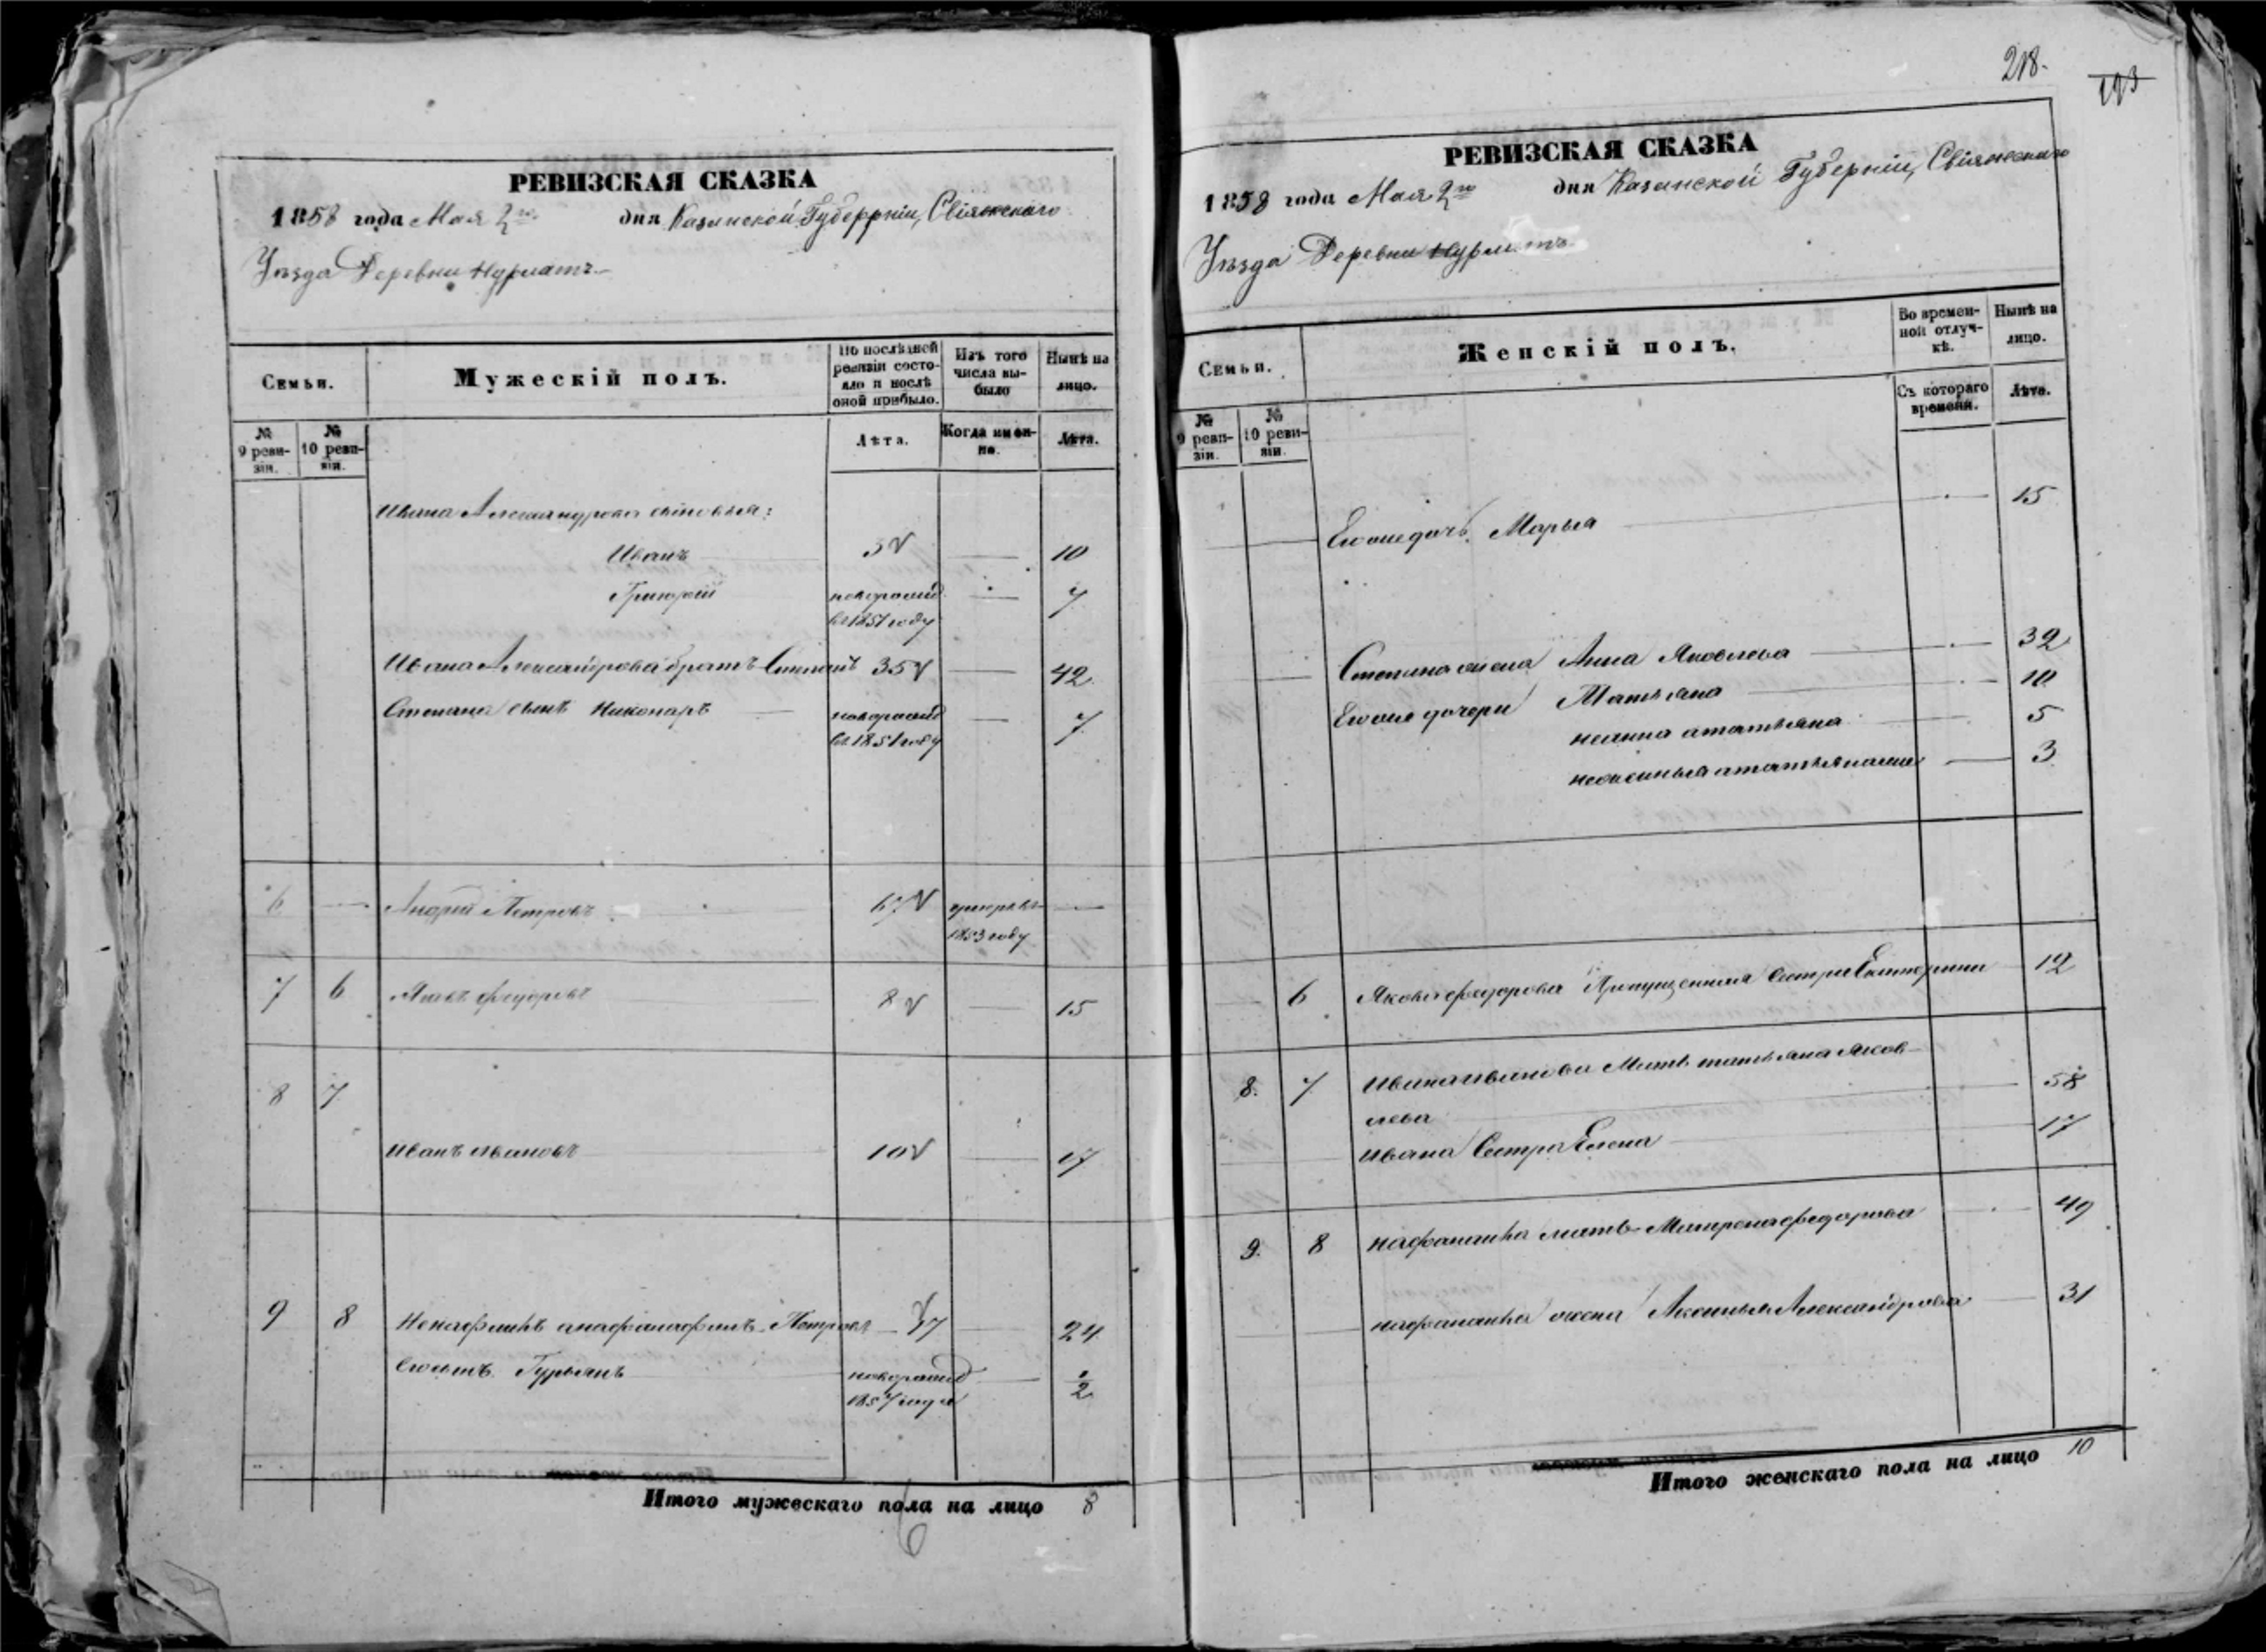 РЕВИЗСКАЯ СКАЗКА
1858 года Мая 2го дня Казанской Губерніи, Свіяжскаго
Уѣзда Деревни Нурлатъ
Семьи.
Мужескій полъ.
По послѣдней ревизіи состояло и послѣ оной прибыло.
Изъ того числа выбыло
Нынѣ на лицо.
№ 9 ревизіи.
№ 10 ревизіи.
Лѣта.
Когда именно.
Лѣта.
Ивана Александрова сыновья:
Иванъ 3 10
Григорій новорожд 7
въ 1851 году
Ивана Александрова братъ Степанъ 35 42
Степана сынъ Никонаръ новорожд 7
въ 1851 году
6 — Андрей Петровъ 67 умеръ въ —
1853 году
7 6 Яковъ Федоровъ 8 15
8 7
Иванъ Ивановъ 10 17
9 8 Петровъ 17 24
Его сынъ Гурьянъ новорожд 1/2
1857 года
Итого мужескаго пола на лицо 8
6
218.
193
РЕВИЗСКАЯ СКАЗКА
1858 года Мая 2го дня Казанской Губерніи, Свіяжскаго
Уѣзда Деревни Нурлатъ
Семьи.
Женскій полъ.
Во временной отлучкѣ.
Нынѣ на лицо.
№ 9 ревизіи.
№ 10 ревизіи.
Съ котораго времени.
Лѣта.
Его же дочь Марья 15
Степана жена Анна Яковлева 32
Его же дочери Татьяна 10
не анна а татьяна 5
3
6 Якова Федорова Пропущенная сестра Екатерина 12
8. 7 Ивана Иванова Мать татьяна Яков-
лева 58
Ивана Сестра Елена 17
9. 8 мать Матрена федорова 49
жена Аксинья Александрова 31
Итого женскаго пола на лицо 10